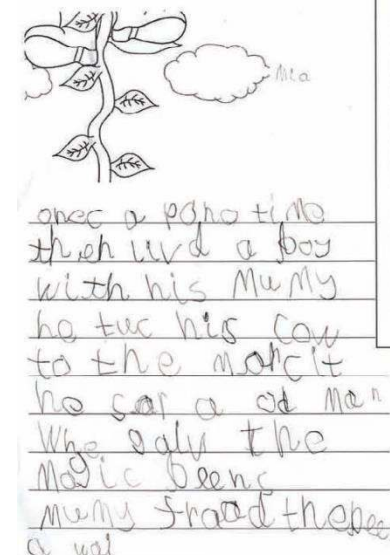 Mia
onec a pono time
then livd a boy
with his Mumy
he tuc his cow
to the marcit
he sar a od man
Whe the
Magic beens
Mumy the bee
a wai